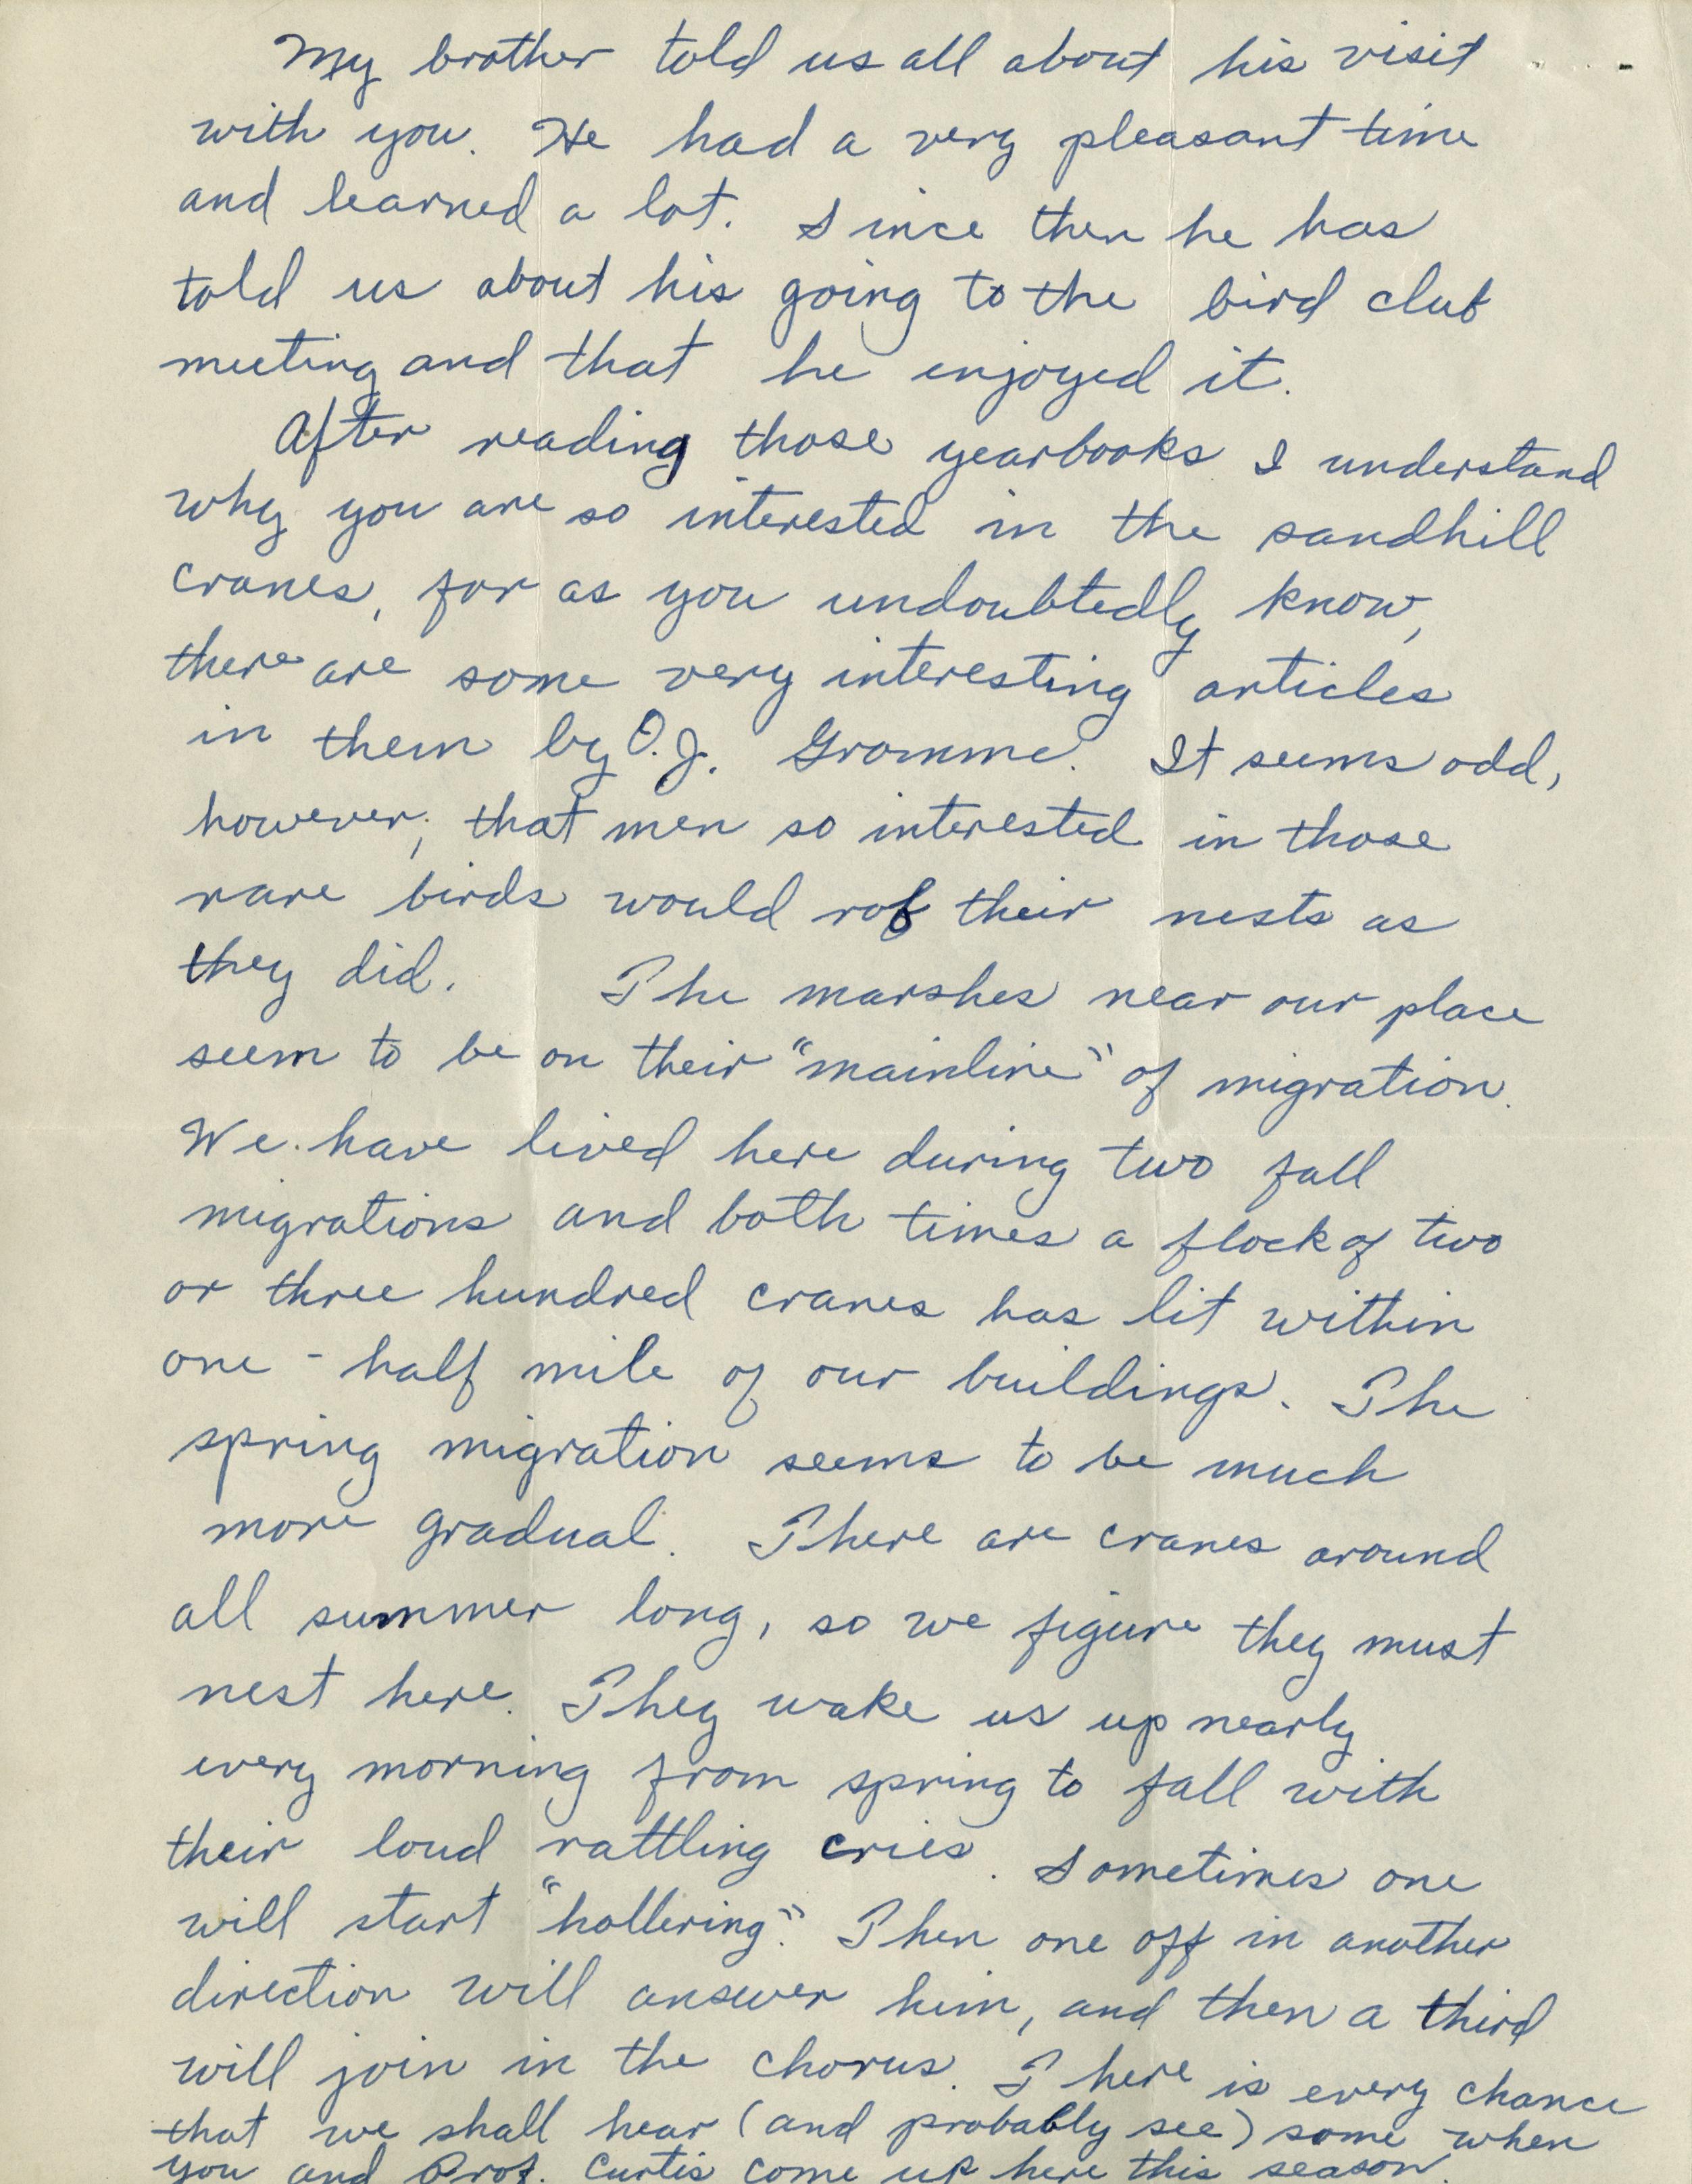 My brother told us all about his visit
with you. He had a very pleasant time
and learned a lot. Since then he has
told us about his going to the bird club
meeting and that he enjoyed it.
After reading those yearbooks I understand
why you are so interested in the sandhill
cranes, for as you undoubtedly know,
there are some very interesting articles
in them by O. J. Gromme. It seems odd,
however, that men so interested in those
rare birds would rob their nests as
they did. The marshes near our place
seem to be on their "mainline" of migration.
We have lived here during two fall
migrations and both times a flock of two
or three hundred cranes has lit within
one-half mile of our buildings. The
spring migration seems to be much
more gradual. There are cranes around
all summer long, so we figure they must
nest here. They wake us up nearly
every morning from spring to fall with
their loud rattling cries. Sometimes one
will start "hollering". Then one off in another
direction will answer him, and then a third
will join in the chorus. There is every chance
that we shall hear (and probably see) some when
you and Prof. Curtis come up here this season.